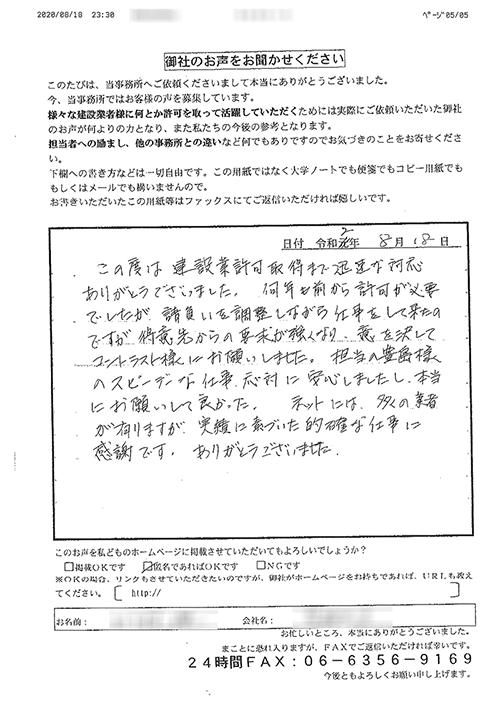 2020/08/18 23:30 ﾍﾟｰｼﾞ05/05
御社のお声をお聞かせください
このたびは、当事務所へご依頼くださいまして本当にありがとうございました。
今、当事務所ではお客様の声を募集しています。
様々な建設業者様に何とか許可を取って活躍していただくためには実際にご依頼いただいた御社
のお声が何よりの力となり、また私たちの今後の参考となります。
担当者への励まし、他の事務所との違いなど何でもありですのでお気づきのことをお寄せくださ
い。
下欄への書き方などは一切自由です。この用紙ではなく大学ノートでも便箋でもコピー用紙でも
もしくはメールでも構いませんので。
お書きいただいたこの用紙等はファックスにてご返信いただければ嬉しいです。
日付 令和2年 8月 18日
この度は 建設業許可取得まで迅速な対応
ありがとうございました。 何年も前から許可が必要
でしたが 請負いを調整しながら仕事をして来たの
ですが 得意先からの要求が強くなり、意を決して
コントラスト様にお願いしました。 担当の豊島様
のスピーデな仕事、応対に安心しましたし、本当
にお願いして良かった。 ネットには、多くの業者
が有りますが 実績に基づいた的確な仕事に
感謝です。 ありがとうございました.
このお声を私どものホームページに掲載させていただいてもよろしいでしょうか?
□掲載OKです ☑匿名であればOKです □NGです
※OKの場合、リンクもさせていただきたいのですが、御社がホームページをお持ちであれば、URLも教え
てください。 〔 http:// 〕
お名前: 会社名:
お忙しいところ、本当にありがとうございました。
まことに恐れ入りますが、FAXでご返信いただければ幸いです。
24時間FAX:06-6356-9169
今後ともよろしくお願い申し上げます。